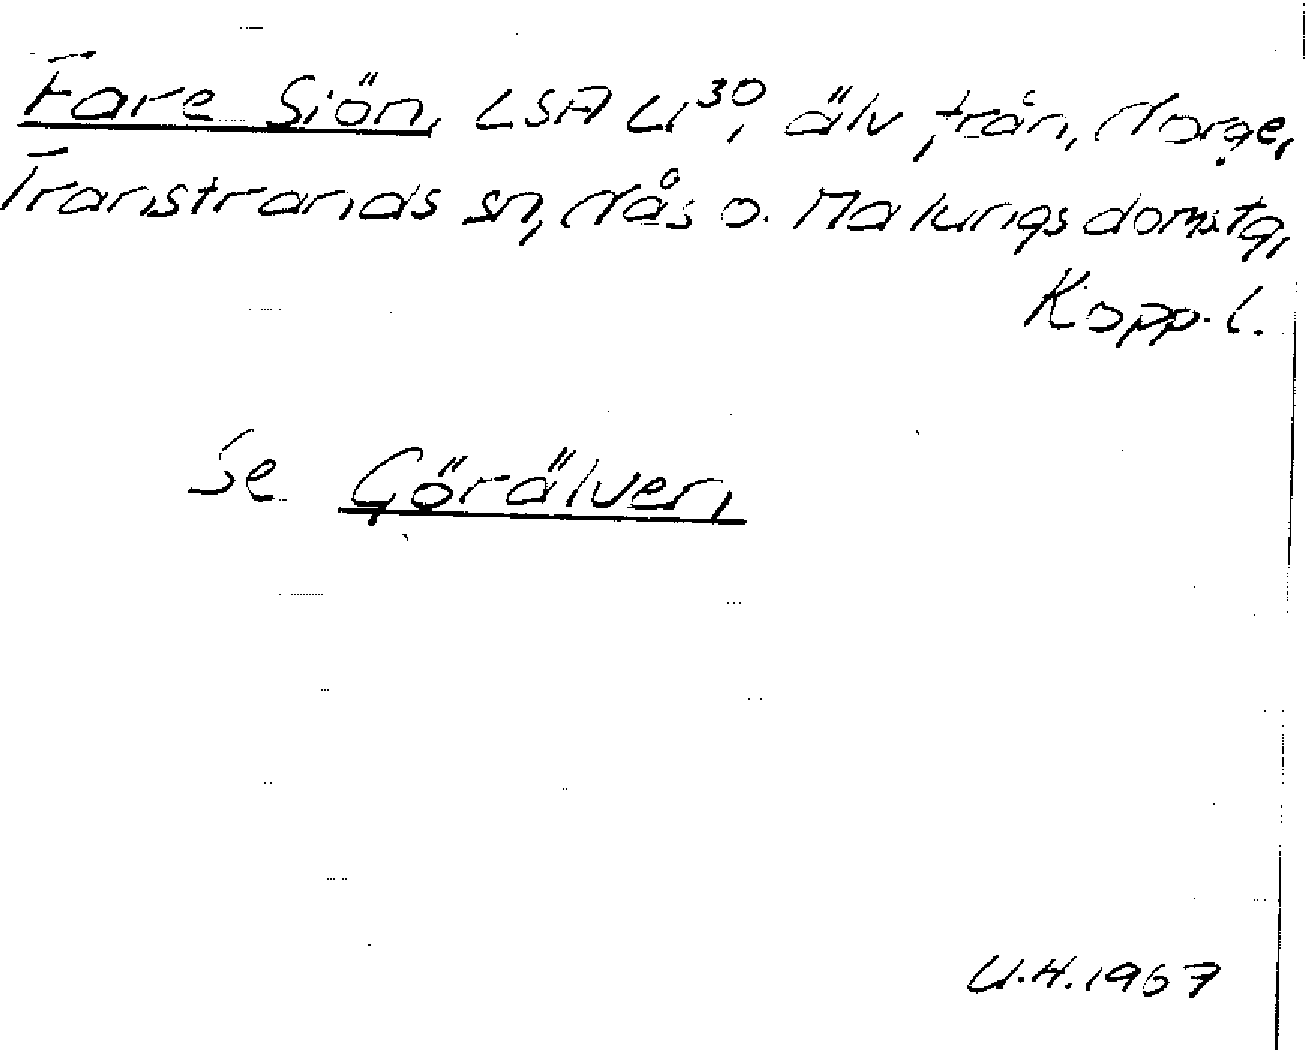 Fare Siön, LSA U³⁰, älv från Norge,
Transtrands sn, Nås o. Malungs domstg,
Kopp. l.
Se Görälven
U.H. 1967